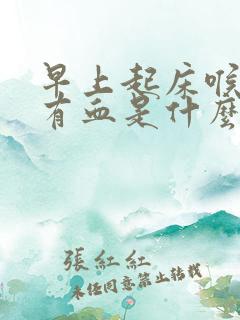 早上起床喉
有血是什麼
張紅紅
未经同意禁止转载